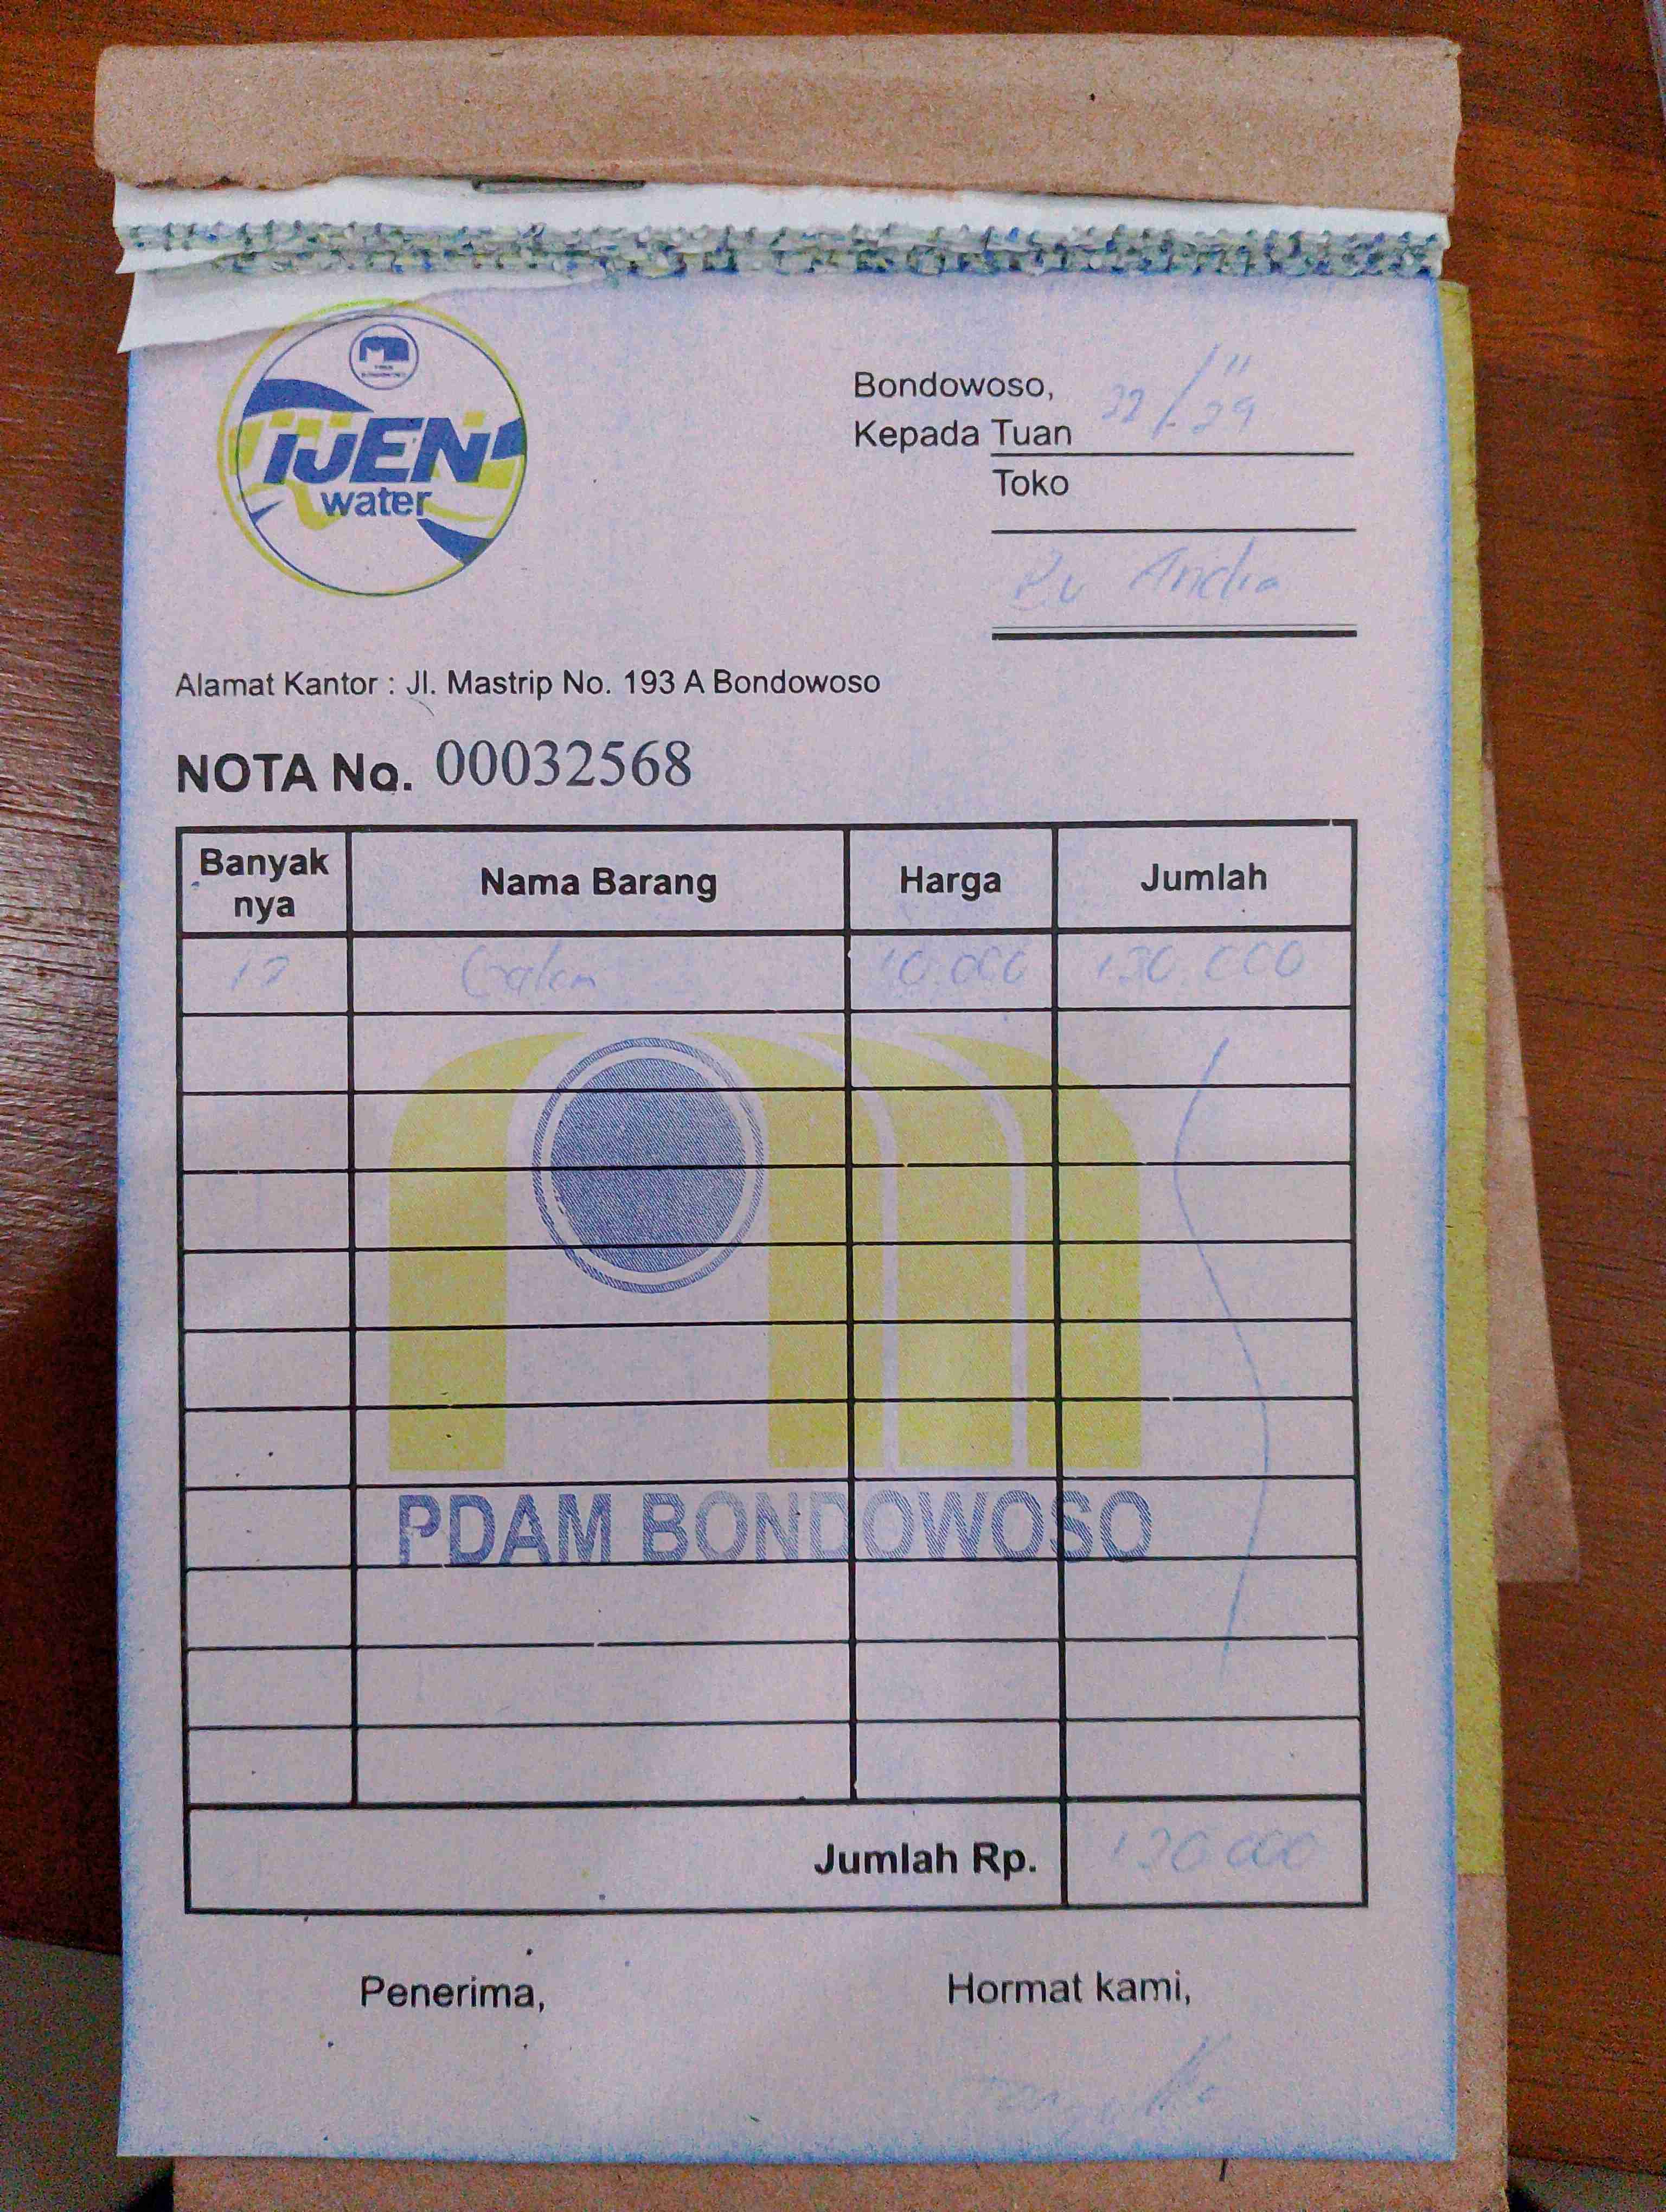 IJEN
water
Bondowoso, 22/11 29
Kepada Tuan
Toko
Bu Andra
Alamat Kantor : Jl. Mastrip No. 193 A Bondowoso
NOTA No. 00032568
Banyak nya Nama Barang Harga Jumlah
Galon 10.000
PDAM BONDOWOSO
Jumlah Rp.
Penerima, Hormat kami,